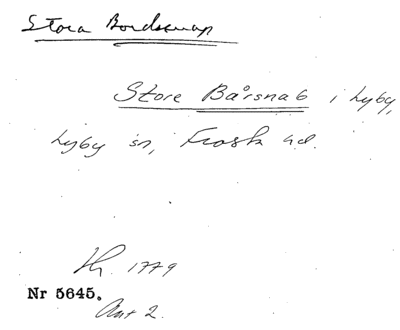 Stora Bordsnap
Store Bårsnab i Lyby,
Lyby sn, Frosta hd.
Lh. 1779
Nr 5645.
Akt 2.